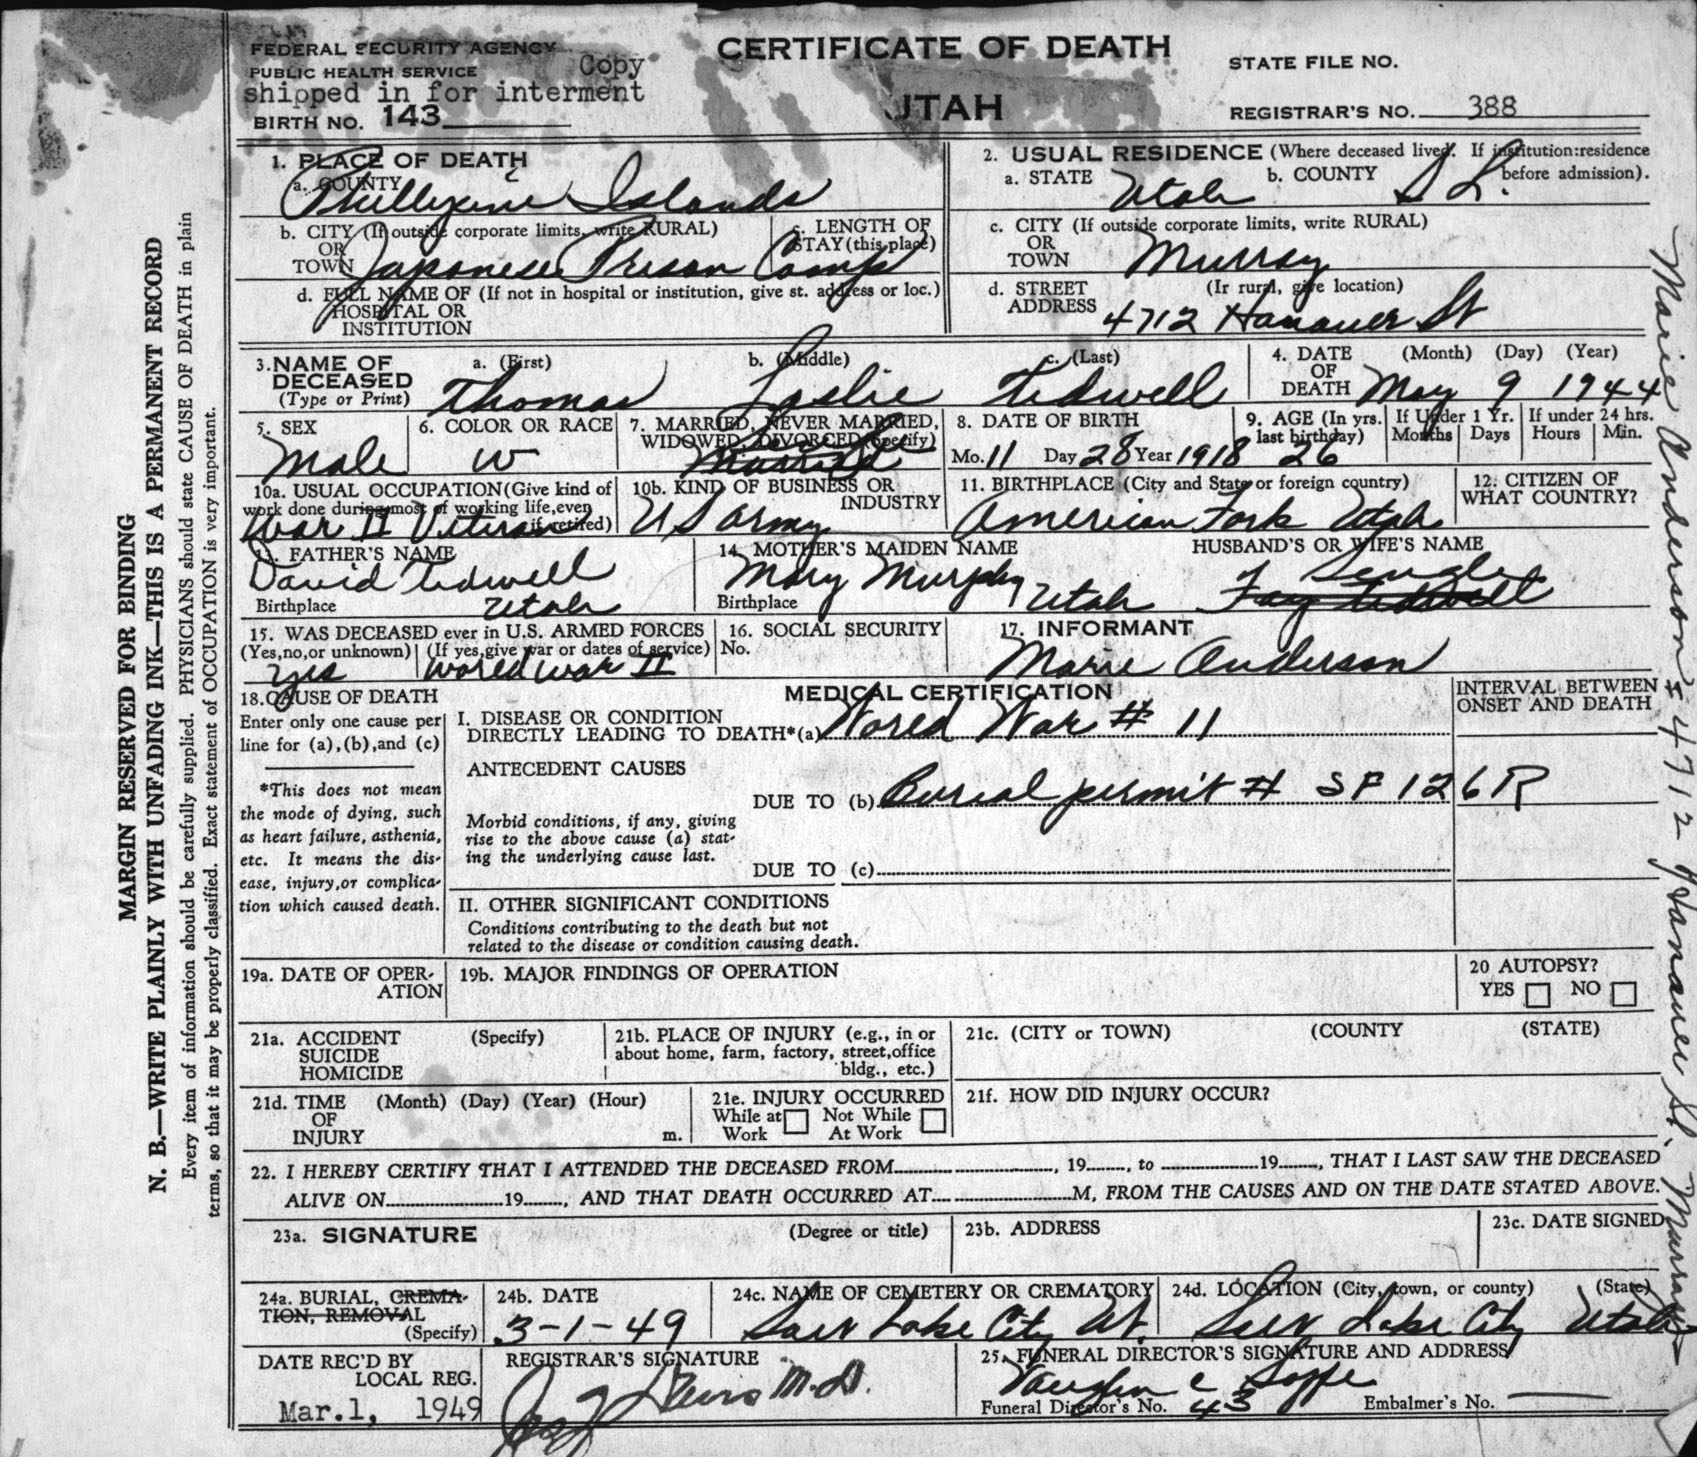 FEDERAL SECURITY AGENCY
PUBLIC HEALTH SERVICE
Copy
shipped in for interment
BIRTH NO. 143
CERTIFICATE OF DEATH
UTAH
STATE FILE NO.
REGISTRAR'S NO. 388
1. PLACE OF DEATH
a. COUNTY
Phillipine Islands
b. CITY (If outside corporate limits, write RURAL)
OR
TOWN
c. LENGTH OF
STAY (this place)
Japanese Prison Camp
d. FULL NAME OF (If not in hospital or institution, give st. address or loc.)
HOSPITAL OR
INSTITUTION
2. USUAL RESIDENCE (Where deceased lived. If institution:residence
before admission).
a. STATE Utah b. COUNTY S L.
c. CITY (If outside corporate limits, write RURAL)
OR
TOWN Murray
d. STREET (Ir rural, give location)
ADDRESS 4712 Hanauer St
3. NAME OF
DECEASED
(Type or Print)
a. (First) b. (Middle) c. (Last)
Thomas Leslie Tidwell
4. DATE (Month) (Day) (Year)
OF
DEATH May 9 1944
5. SEX
Male
6. COLOR OR RACE
W
7. MARRIED, NEVER MARRIED,
WIDOWED, DIVORCED (Specify)
Married
8. DATE OF BIRTH
Mo. 11 Day 28 Year 1918
9. AGE (In yrs.
last birthday)
26
If Under 1 Yr.
Months Days
If under 24 hrs.
Hours Min.
10a. USUAL OCCUPATION (Give kind of
work done during most of working life, even
if retired)
War II Viteran
10b. KIND OF BUSINESS OR
INDUSTRY
US Army
11. BIRTHPLACE (City and State or foreign country)
American Fork Utah
12. CITIZEN OF
WHAT COUNTRY?
13. FATHER'S NAME
David Tidwell
Birthplace Utah
14. MOTHER'S MAIDEN NAME
Mary Murphy
Birthplace Utah
HUSBAND'S OR WIFE'S NAME
Single
Fay Tidwell
15. WAS DECEASED ever in U.S. ARMED FORCES
(Yes,no,or unknown) (If yes,give war or dates of service)
yes World War II
16. SOCIAL SECURITY
No.
17. INFORMANT
Marie Anderson
18. CAUSE OF DEATH
Enter only one cause per
line for (a),(b),and (c)
*This does not mean
the mode of dying, such
as heart failure, asthenia,
etc. It means the dis-
ease, injury,or complica-
tion which caused death.
MEDICAL CERTIFICATION
I. DISEASE OR CONDITION
DIRECTLY LEADING TO DEATH*(a) World War # 11
ANTECEDENT CAUSES
DUE TO (b) Burial permit # SF 126R
Morbid conditions, if any, giving
rise to the above cause (a) stat-
ing the underlying cause last.
DUE TO (c)
II. OTHER SIGNIFICANT CONDITIONS
Conditions contributing to the death but not
related to the disease or condition causing death.
INTERVAL BETWEEN
ONSET AND DEATH
19a. DATE OF OPER-
ATION
19b. MAJOR FINDINGS OF OPERATION
20 AUTOPSY?
YES NO
21a. ACCIDENT (Specify)
SUICIDE
HOMICIDE
21b. PLACE OF INJURY (e.g., in or
about home, farm, factory, street,office
bldg., etc.)
21c. (CITY or TOWN) (COUNTY (STATE)
21d. TIME (Month) (Day) (Year) (Hour)
OF
INJURY m.
21e. INJURY OCCURRED
While at Not While
Work At Work
21f. HOW DID INJURY OCCUR?
22. I HEREBY CERTIFY THAT I ATTENDED THE DECEASED FROM , 19 , to 19 , THAT I LAST SAW THE DECEASED
ALIVE ON 19 , AND THAT DEATH OCCURRED AT M, FROM THE CAUSES AND ON THE DATE STATED ABOVE.
23a. SIGNATURE (Degree or title)
23b. ADDRESS
23c. DATE SIGNED
24a. BURIAL, CREMA-
TION, REMOVAL
(Specify)
24b. DATE
3-1-49
24c. NAME OF CEMETERY OR CREMATORY
Salt Lake City Ut.
24d. LOCATION (City, town, or county) (State)
Salt Lake City Utah
DATE REC'D BY
LOCAL REG.
Mar.1, 1949
REGISTRAR'S SIGNATURE
M.D.
25. FUNERAL DIRECTOR'S SIGNATURE AND ADDRESS
Vaughn C Soffe
Funeral Director's No. 43 Embalmer's No.
MARGIN RESERVED FOR BINDING
N. B.—WRITE PLAINLY WITH UNFADING INK—THIS IS A PERMANENT RECORD
Every item of information should be carefully supplied. PHYSICIANS should state CAUSE OF DEATH in plain
terms, so that it may be properly classified. Exact statement of OCCUPATION is very important.
Marie Anderson 4712 Hanauer St. Murray